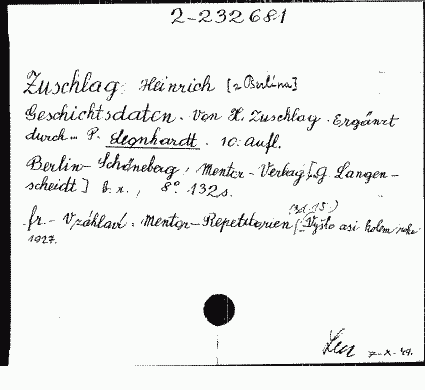 2-232681
Zuschlag, Heinrich [z Berlína]
Geschichtsdaten. Von H. Zuschlag. Ergänzt
durch... P. Leonhardt. 10. Aufl.
Berlin-Schöneberg, Mentor-Verlag [G. Langen-
scheidt] b. r., 8° 132 s.
fr. - V záhlaví: Mentor-Repetitorien (Bd. 15.) [Vyšlo asi kolem roku
1927.
7-X-49.